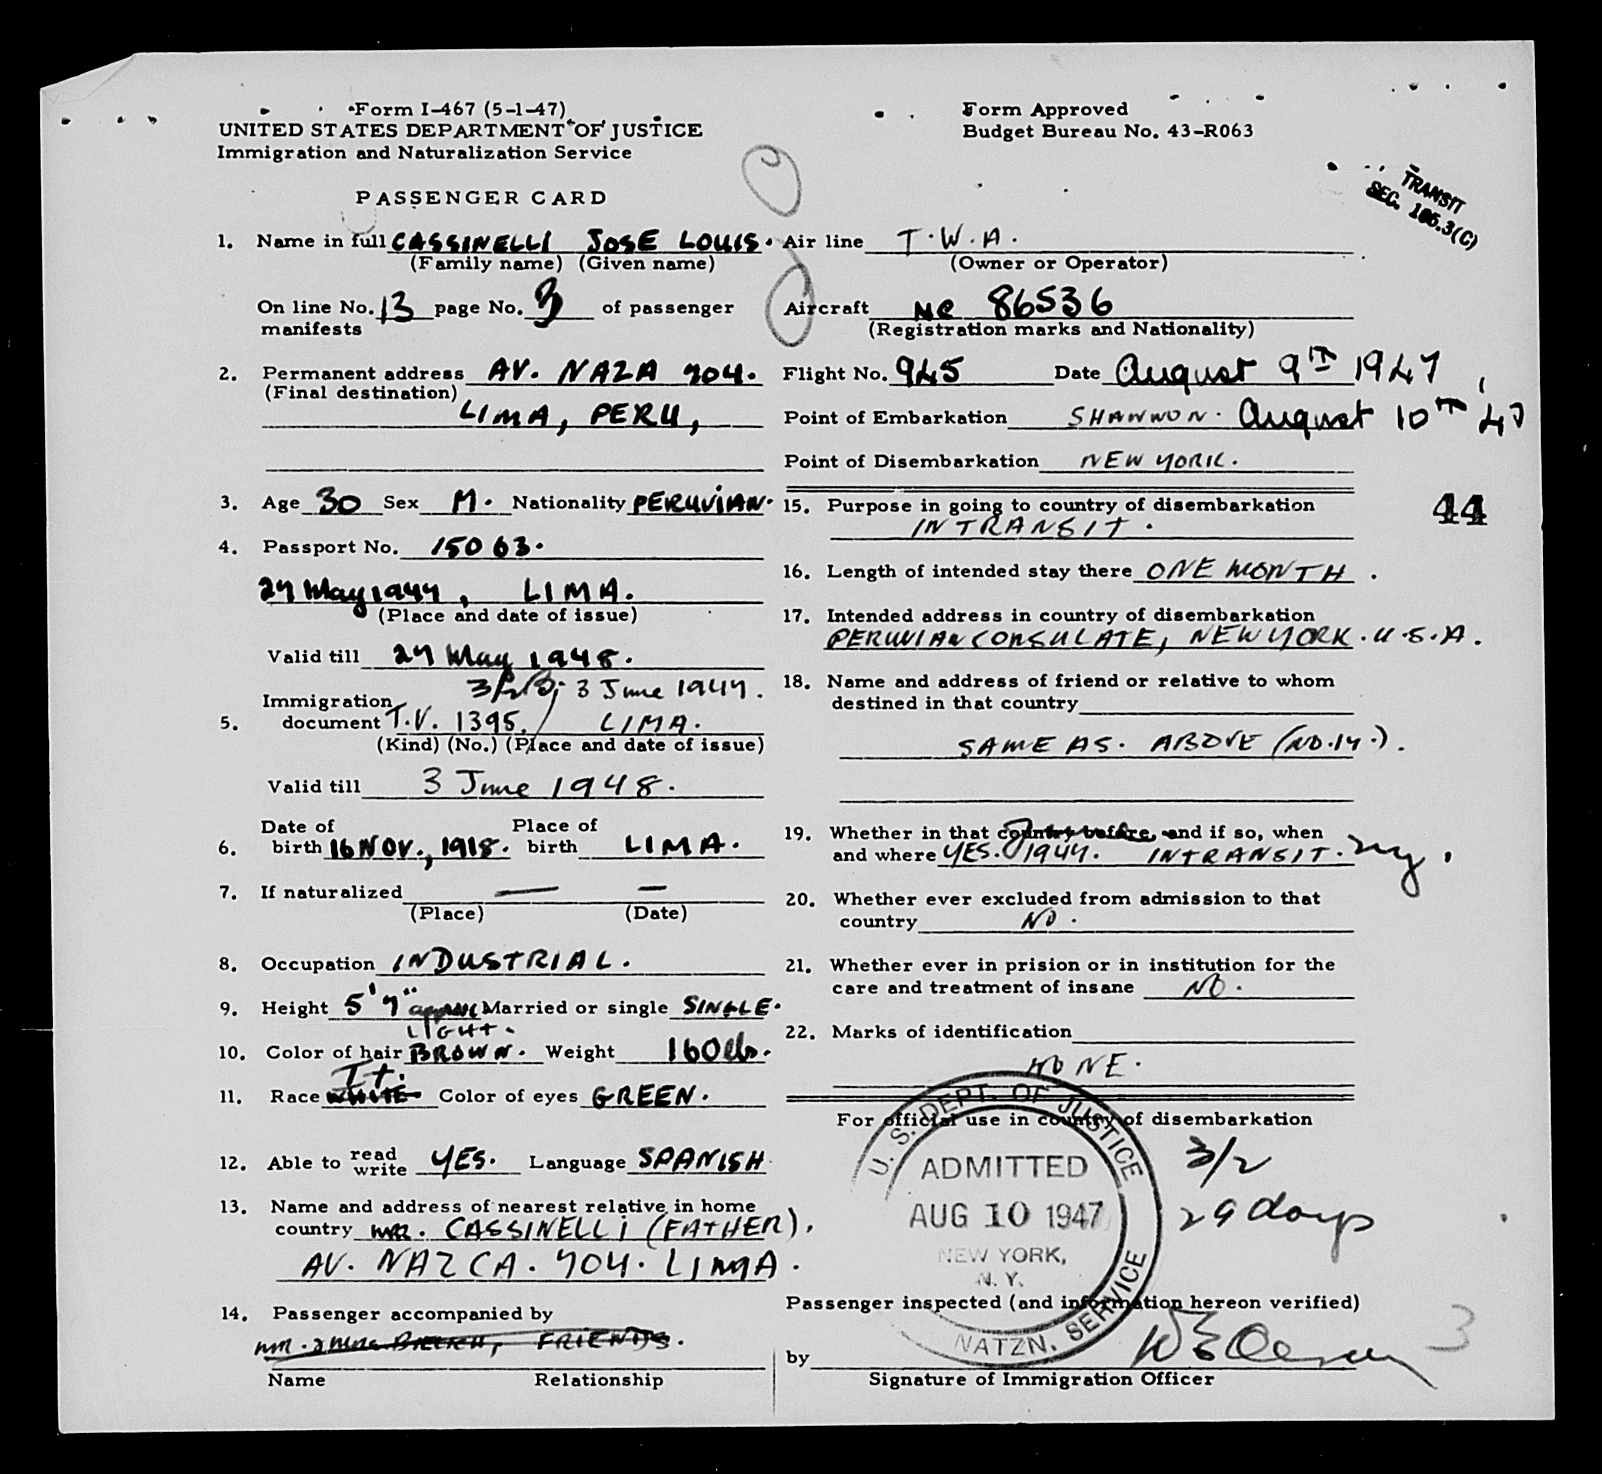 Form I-467 (5-1-47)
UNITED STATES DEPARTMENT OF JUSTICE
Immigration and Naturalization Service
PASSENGER CARD
Form Approved
Budget Bureau No. 43-R063
TRANSIT
SEC. 105.3(C)
1. Name in full CASSINELLI JOSE LOUIS.
(Family name) (Given name)
On line No. 13 page No. 3 of passenger
manifests
2. Permanent address AV. NAZA 704.
(Final destination)
LIMA, PERU,
3. Age 30 Sex M. Nationality PERUVIAN.
4. Passport No. 15063.
27 May 1947, LIMA.
(Place and date of issue)
Valid till 27 May 1948.
3 June 1947.
Immigration
5. document T.V. 1395. / LIMA.
(Kind) (No.) (Place and date of issue)
Valid till 3 June 1948.
Date of Place of
6. birth 16 NOV., 1918. birth LIMA.
7. If naturalized — —
(Place) (Date)
8. Occupation INDUSTRIAL.
9. Height 5'7" approx Married or single SINGLE.
LIGHT.
10. Color of hair BROWN. Weight 160 lbs.
It.
11. Race WHITE Color of eyes GREEN.
12. Able to read write YES. Language SPANISH
13. Name and address of nearest relative in home
country MR. CASSINELLI (FATHER).
AV. NAZCA. 704. LIMA.
14. Passenger accompanied by
FRIENDS.
Name Relationship
Air line T.W.A.
(Owner or Operator)
Aircraft NC 86536
(Registration marks and Nationality)
Flight No. 945 Date August 9TH 1947
Point of Embarkation SHANNON. August 10TH 47
Point of Disembarkation NEW YORK.
15. Purpose in going to country of disembarkation
IN TRANSIT.
44
16. Length of intended stay there ONE MONTH.
17. Intended address in country of disembarkation
PERUVIAN CONSULATE, NEW YORK. U.S.A.
18. Name and address of friend or relative to whom
destined in that country
SAME AS. ABOVE (NO.17.).
19. Whether in that country before, and if so, when
and where YES. 1947. INTRANSIT. NY.
20. Whether ever excluded from admission to that
country NO.
21. Whether ever in prision or in institution for the
care and treatment of insane NO.
22. Marks of identification
NONE.
For official use in country of disembarkation
U. S. DEPT. OF JUSTICE
ADMITTED
AUG 10 1947
NEW YORK,
N. Y.
NATZN. SERVICE
3/2
29 days
Passenger inspected (and information hereon verified)
by
3
Signature of Immigration Officer